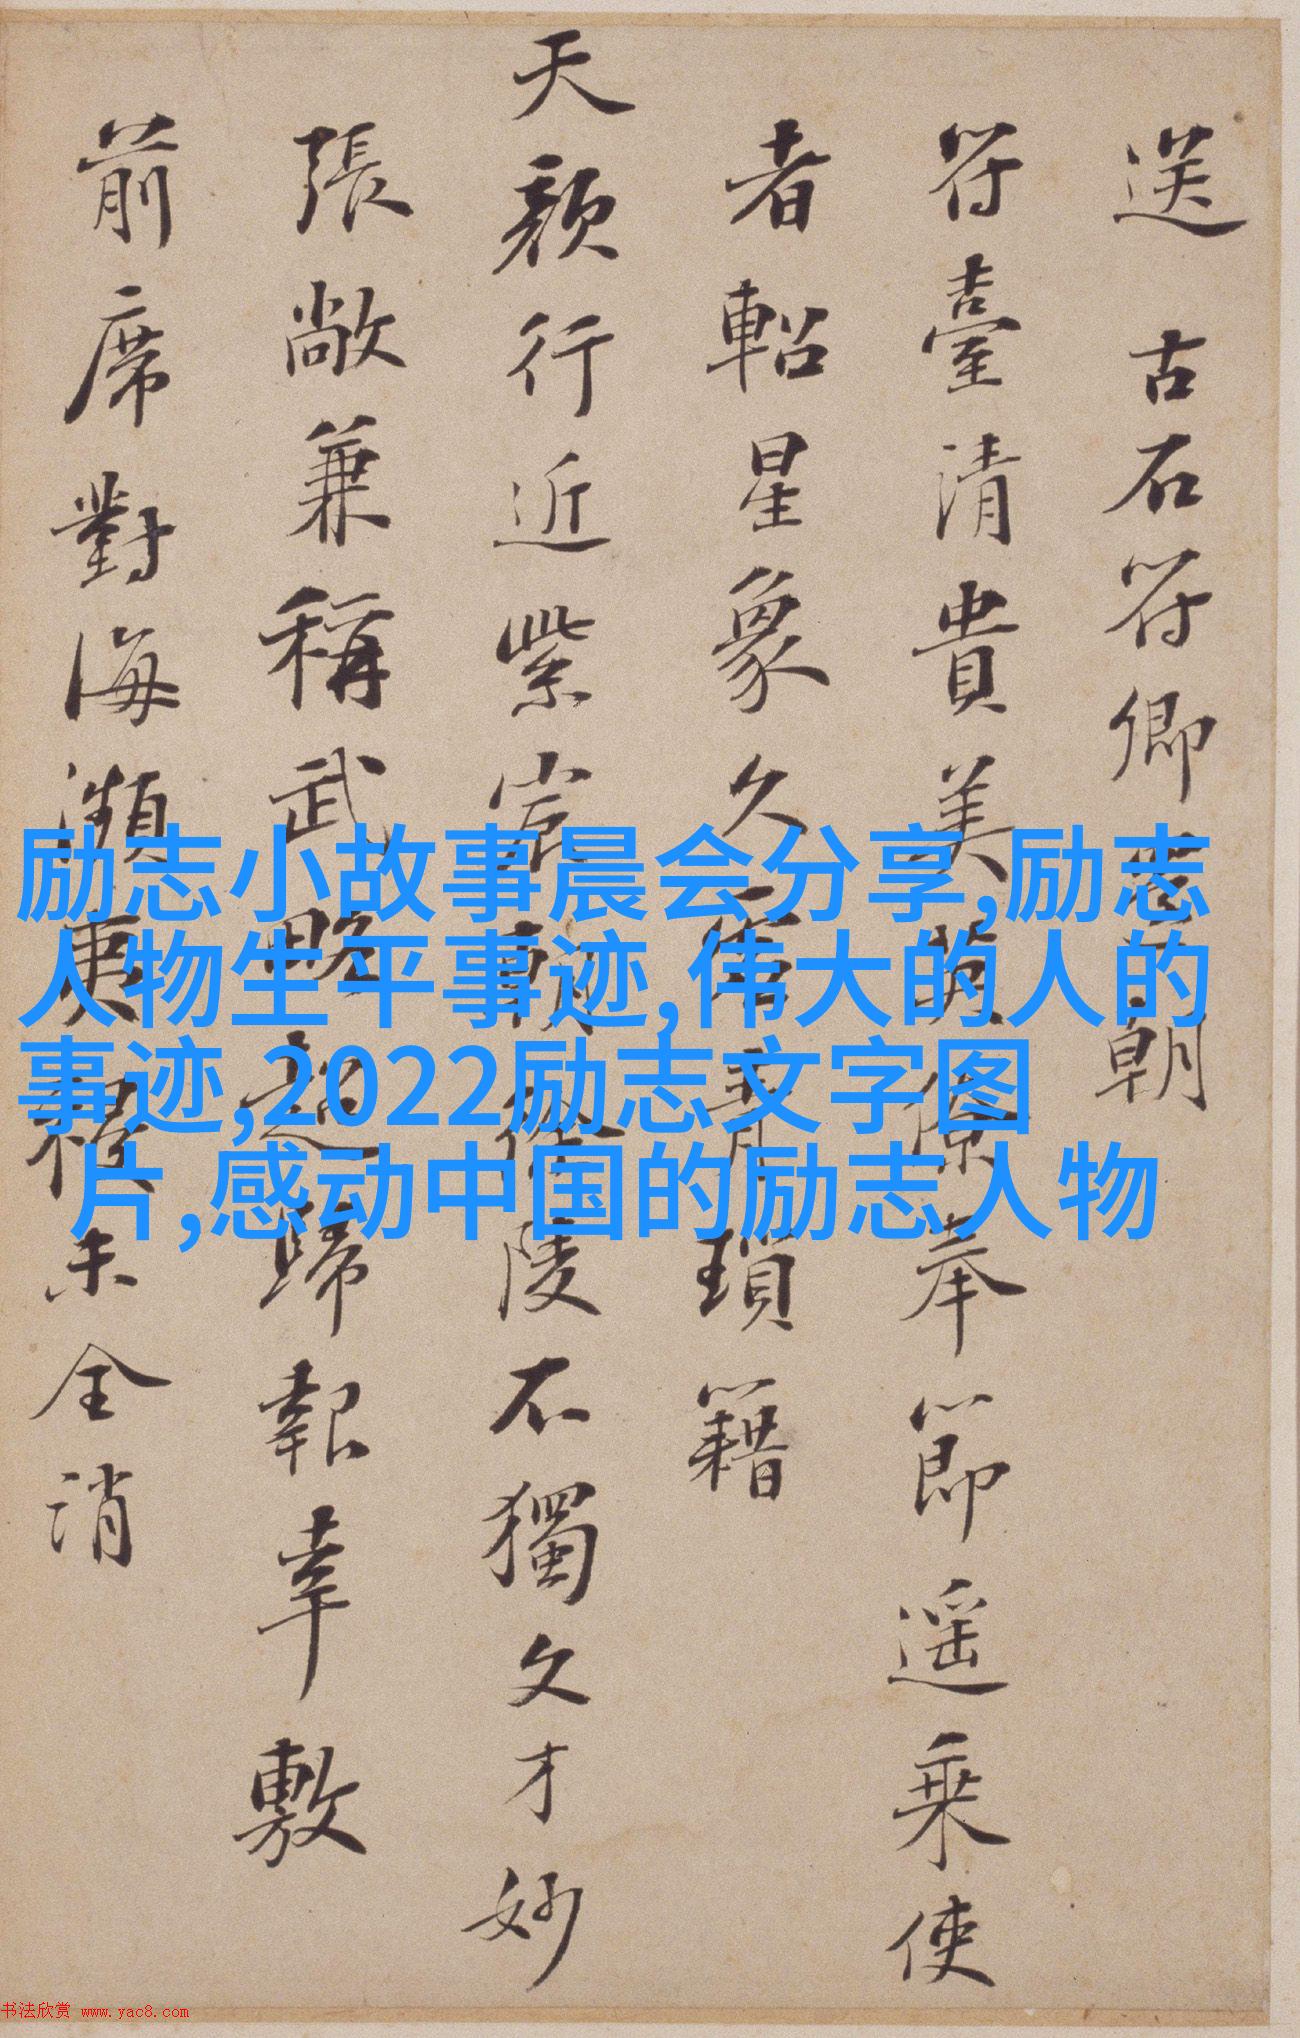 送 古石符卿朝
符臺清貴美英僚奉節遥乗使
者軺星象久青瑣籍
天顔行近紫宸朝徐陵不獨文才妙
張敞兼稱武略超歸報幸敷
前席對海瀕庚未全消
励志小故事晨会分享,励志
人物生平事迹,伟大的人的
事迹,2022励志文字图
片,感动中国的励志人物
书法欣赏 www.yac8.com